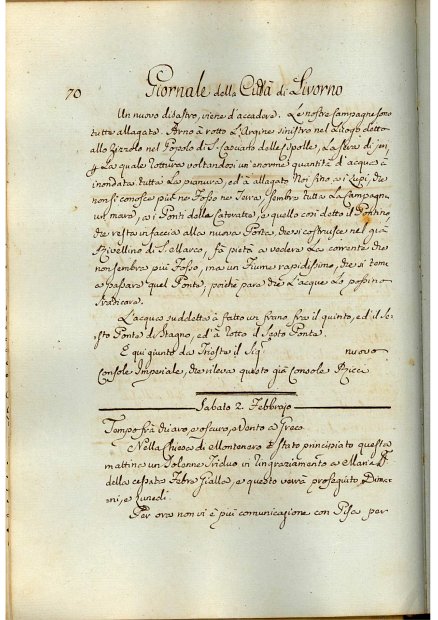 70
Giornale della Città di Livorno
Un nuovo disastro, viene d'accadere. Le nostre Campagne sono
tutte allagate. Arno à rotto L'Argine sinistro nel Luogo detto
allo nel Popolo di S. Casciano delle Spolle, La sera di
La quale rottura voltandosi un'enorme quantità d'acque à
inondata tutta La pianura, ed à allagato Noi fino a i Lupi, che
non si conosce più ne Fosso ne Terra, sembra tutta La Campagna
un mare, a i Ponti delle Cateratte, e quello così detto il Pontino
che resta in faccia alla nuova Porta, che si costruisce nel già
Rivellino di S. Marco, fà pietà a vedere La corrente che
non sembra più Fosso, ma un Fiume rapidissimo, che si teme
a passare quel Ponte, poiché pare che L'acque Lo possino
svancare.
L'acque suddette à fatto un frano fra il quinto, ed il Se-
sto Ponte di Stagno, ed à rotto il Sesto Ponte.
È qui giunto da Trieste il Sig. nuovo
Console Imperiale, che rileva questo già Console Ricci
Sabato 2. Febbrajo
Tempo frà chiaro, e oscuro, e Vento a Greco
Nella Chiesa di Montenero è Stato principiato questa
mattina un Solenne Triduo in ringraziamento a Maria
della cessata Febre Gialla, e questo verrà proseguito Doma-
ni, e Lunedì.
Per ora non vi è più comunicazione con Pisa per